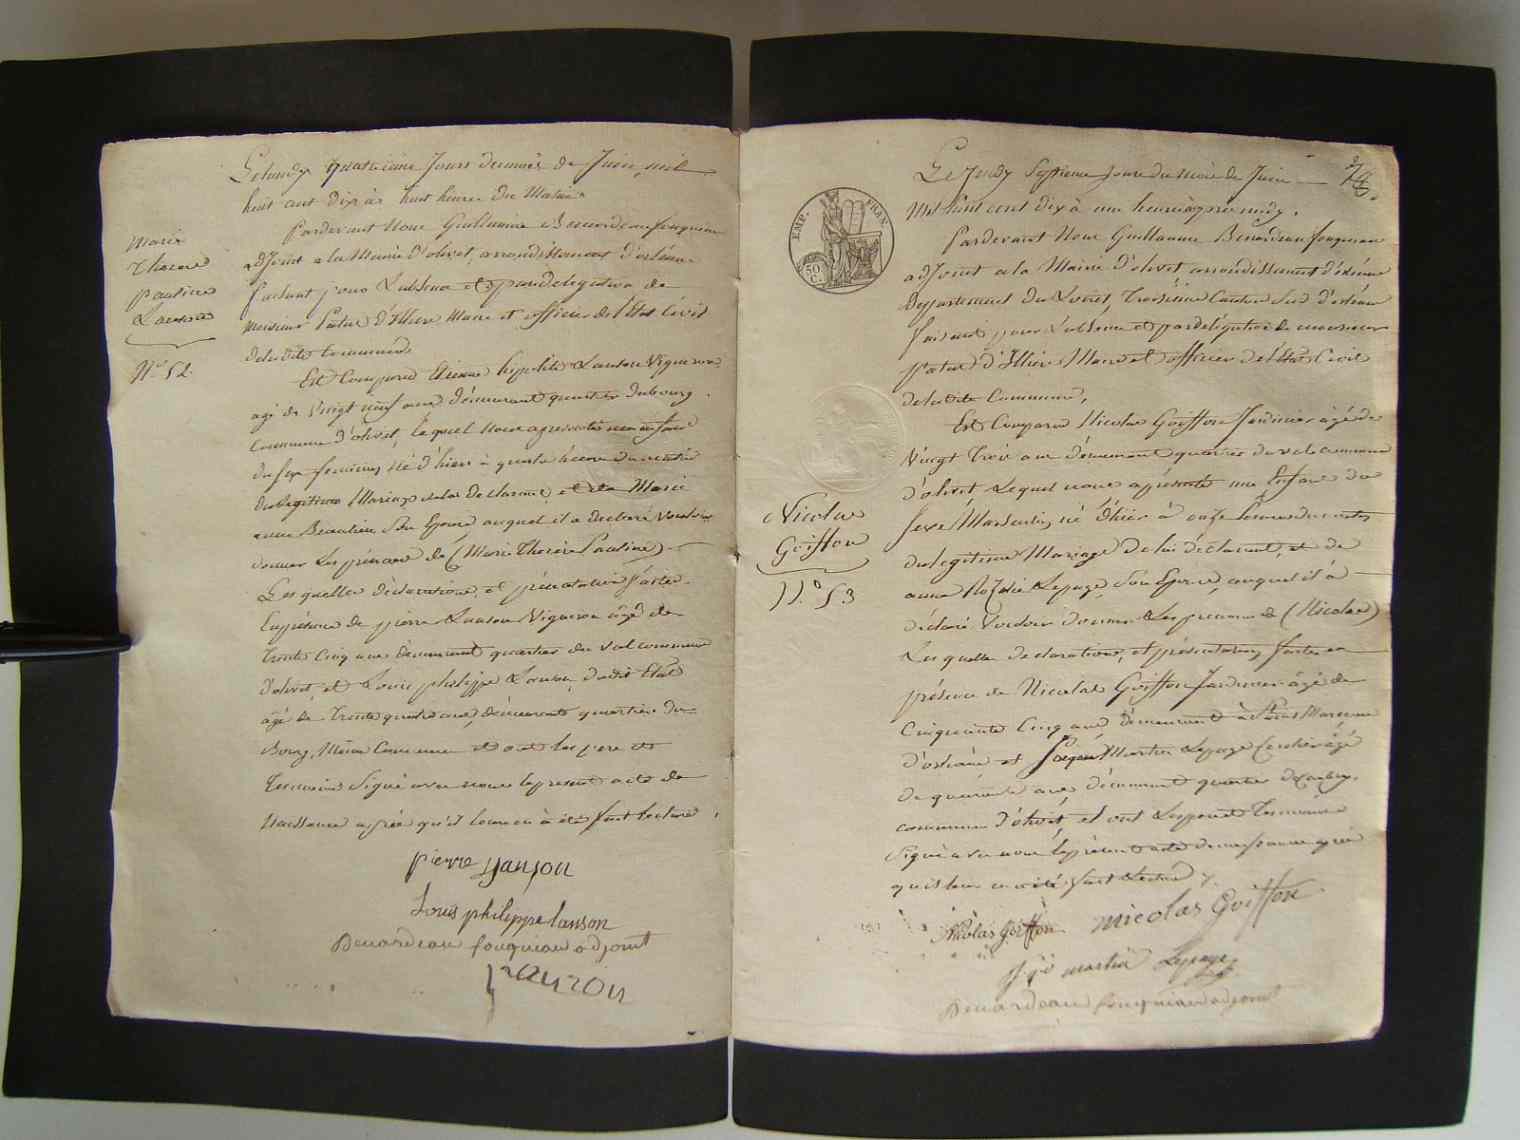 Marie
Therese
pauline
Lanson
N.° 52.
Le lundy quatrieme Jours du mois de Juin, mil
huit cent dix à huit heures du Matin
Pardevant Nous Guillaume Benardeau fouquiau
adJoint a la Mairie D'olivet, arrondissement d'orléans
faisant pour L'absence et par delegation de
Monsieur Patas d'Illiers Maire et officier de l'Etat Civil
de ladite Commune
Est Comparu Etienne hipolite Lanson Vigneron
agé de Vingt neuf ans démeurant quartier du bourg
Commune d'olivet, lequel nous a presenté un enfant
du sexe feminin, né d'hier à quatre heures du
du legitime Mariage de lui declarant et de Marie
anne Beaulieu, son Epouse, auquel il a declaré vouloir
donner les prénoms de (Marie Therèse Pauline)
Les quelles déclarations, et présentation faites
En présence de pierre Lanson Vigneron âgé de
trente Cinq ans demeurant quartier du Val commune
d'olivet, et Louis philippe Lanson, dudit Etat
âgé de trente quatre ans, démeurant quartier du
Bourg, Même Commune et ont les pere et
temoins Signé avec nous le present acte de
Naissance après qu'il leur en à été fait lecture
pierre Lanson
Louis philippe lanson
Benardeau fouquiau adjoint
Lanson
78.
EMP. FRAN.
50
C.
Nicolas
Goiffon
N.° 53
Le Jeudy Septieme Jours du Mois de Juin
Mil huit cent dix à une heure après midy.
Pardevant Nous Guillaume Benardeau fouquiau
adJoint a la Mairie d'olivet arrondissement d'orléans
Departement du Loiret, Troisième Canton Sud d'orléans
faisant pour L'absence et par délégation de monsieur
Patas d'Illiers Maire et officier de l'Etat Civil
de ladite Commune,
Est Comparu Nicolas Goiffon Jardinier âgé de
Vingt Trois ans démeurant quartier du val commune
d'olivet Lequel nous a présenté un Enfant du
sexe Masculin, né d'hier à onze heures du matin
du legitime Mariage de lui déclarant, et de
anne Rosalie Lepage, Son Epouse, auquel il à
déclaré Vouloir donner Les prenoms de (Nicolas)
Les quelles declarations, et présentation faites en
présence de Nicolas Goiffon Jardinier âgé de
Cinquante Cinq ans démeurant à St Marceau
d'orléans et Joseph Martin Lepage âgé
de quarante ans, démeurant quartier
commune d'olivet, et ont Les pere et Temoins
Signé avec nous le présent acte de naissance après
qu'il leur en a été fait Lecture
Nicolas Goiffon nicolas Goiffon
martin Lepage
Benardeau fouquiau adjoint